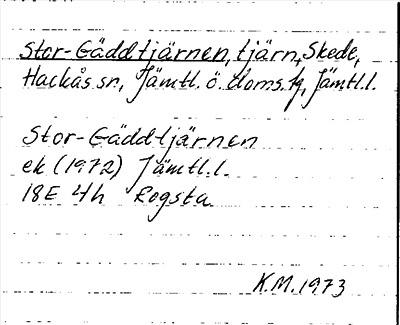 Stor-Gäddtjärnen, tjärn, Skede,
Hackås sn, Jämtl. ö. doms. tg, Jämtl.l.
Stor-Gäddtjärnen
ek (1972) Jämtl.l.
18E 4h Rogsta
K.M. 1973